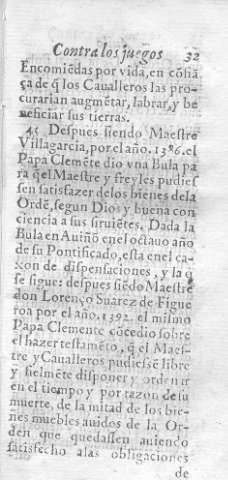 Contra los juegos 32
Encomiẽdas por vida, en cõfia
ça de q̃ los Caualleros las pro-
curarian augmẽtar, labrar, y be
neficiar sus tierras.
45 Despues siendo Maestre
Villagarcia, por el año. 1386. el
Papa Clemẽte dio vna Bula pa
ra q̃ el Maestre y freyles pudies
sen satisfazer de los bienes de la
Ordẽ, segun Dios y buena con
ciencia a sus siruiẽtes. Dada la
Bula en Auiñõ en el octauo año
de su Pontificado, esta en el ca-
xon de dispensaciones, y la q̃
se sigue: despues siẽdo Maestre
don Lorenço Suarez de Figue
roa por el año. 1392. el mismo
Papa Clemente cõcedio sobre
el hazer testamẽto, q̃ el Maes-
tre y Caualleros pudiessẽ libre
y fielmẽte disponer y ordenar
en el tiempo y por razon de su
muerte, de la mitad de los bie-
nes muebles auidos de la Or-
den que quedassen auiendo
satisfecho a las obligaciones
de